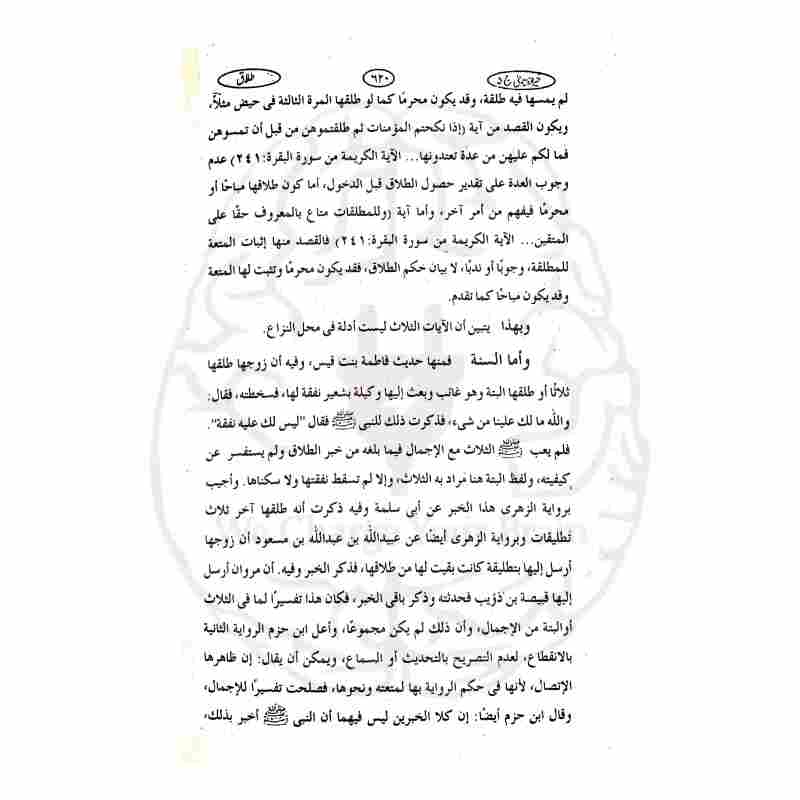 طلاق ٦٢٠ ج ٥
لم يمسها فيه طلقة، وقد يكون محرمًا كما لو طلقها المرة الثالثة فى حيض مثلاً،
ويكون القصد من آية (إذا نكحتم المؤمنات ثم طلقتموهن من قبل أن تمسوهن
فما لكم عليهن من عدة تعتدونها... الآية الكريمة من سورة البقرة:٢٤١) عدم
وجوب العدة على تقدير حصول الطلاق قبل الدخول، أما كون طلاقها مباحًا أو
محرمًا فيفهم من أمر آخر، وأما آية (وللمطلقات متاع بالمعروف حقًا على
المتقين... الآية الكريمة من سورة البقرة:٢٤١) فالقصد منها إثبات المتعة
للمطلقة، وجوبًا أو ندبًا، لا بيان حكم الطلاق، فقد يكون محرمًا وتثبت لها المتعة
وقد يكون مباحًا كما تقدم.
وبهذا يتبين أن الآيات الثلاث ليست أدلة فى محل النزاع.
وأما السنة فمنها حديث فاطمة بنت قيس، وفيه أن زوجها طلقها
ثلاثًا أو طلقها البتة وهو غائب وبعث إليها وكيلة بشعير نفقة لها، فسخطته، فقال:
والله ما لك علينا من شىء، فذكرت ذلك للنبى ﷺ فقال "ليس لك عليه نفقة".
فلم يعب ﷺ الثلاث مع الإجمال فيما بلغه من خبر الطلاق ولم يستفسر عن
كيفيته، ولفظ البتة هنا مراد به الثلاث، وإلا لم تسقط نفقتها ولا سكناها. وأجيب
برواية الزهرى هذا الخبر عن أبى سلمة وفيه ذكرت أنه طلقها آخر ثلاث
تطليقات وبرواية الزهرى أيضًا عن عبيدالله بن عبدالله بن مسعود أن زوجها
أرسل إليها بتطليقة كانت بقيت لها من طلاقها، فذكر الخبر وفيه. أن مروان أرسل
إليها قبيصة بن ذؤيب فحدثته وذكر باقى الخبر، فكان هذا تفسيرًا لما فى الثلاث
أوالبتة من الإجمال، وأن ذلك لم يكن مجموعًا، وأعل ابن حزم الرواية الثانية
بالانقطاع، لعدم التصريح بالتحديث أو السماع، ويمكن أن يقال: إن ظاهرها
الإتصال، لأنها فى حكم الرواية بها لمتعته ونحوها، فصلحت تفسيرًا للإجمال،
وقال ابن حزم أيضًا: إن كلا الخبرين ليس فيهما أن النبى ﷺ أخبر بذلك،